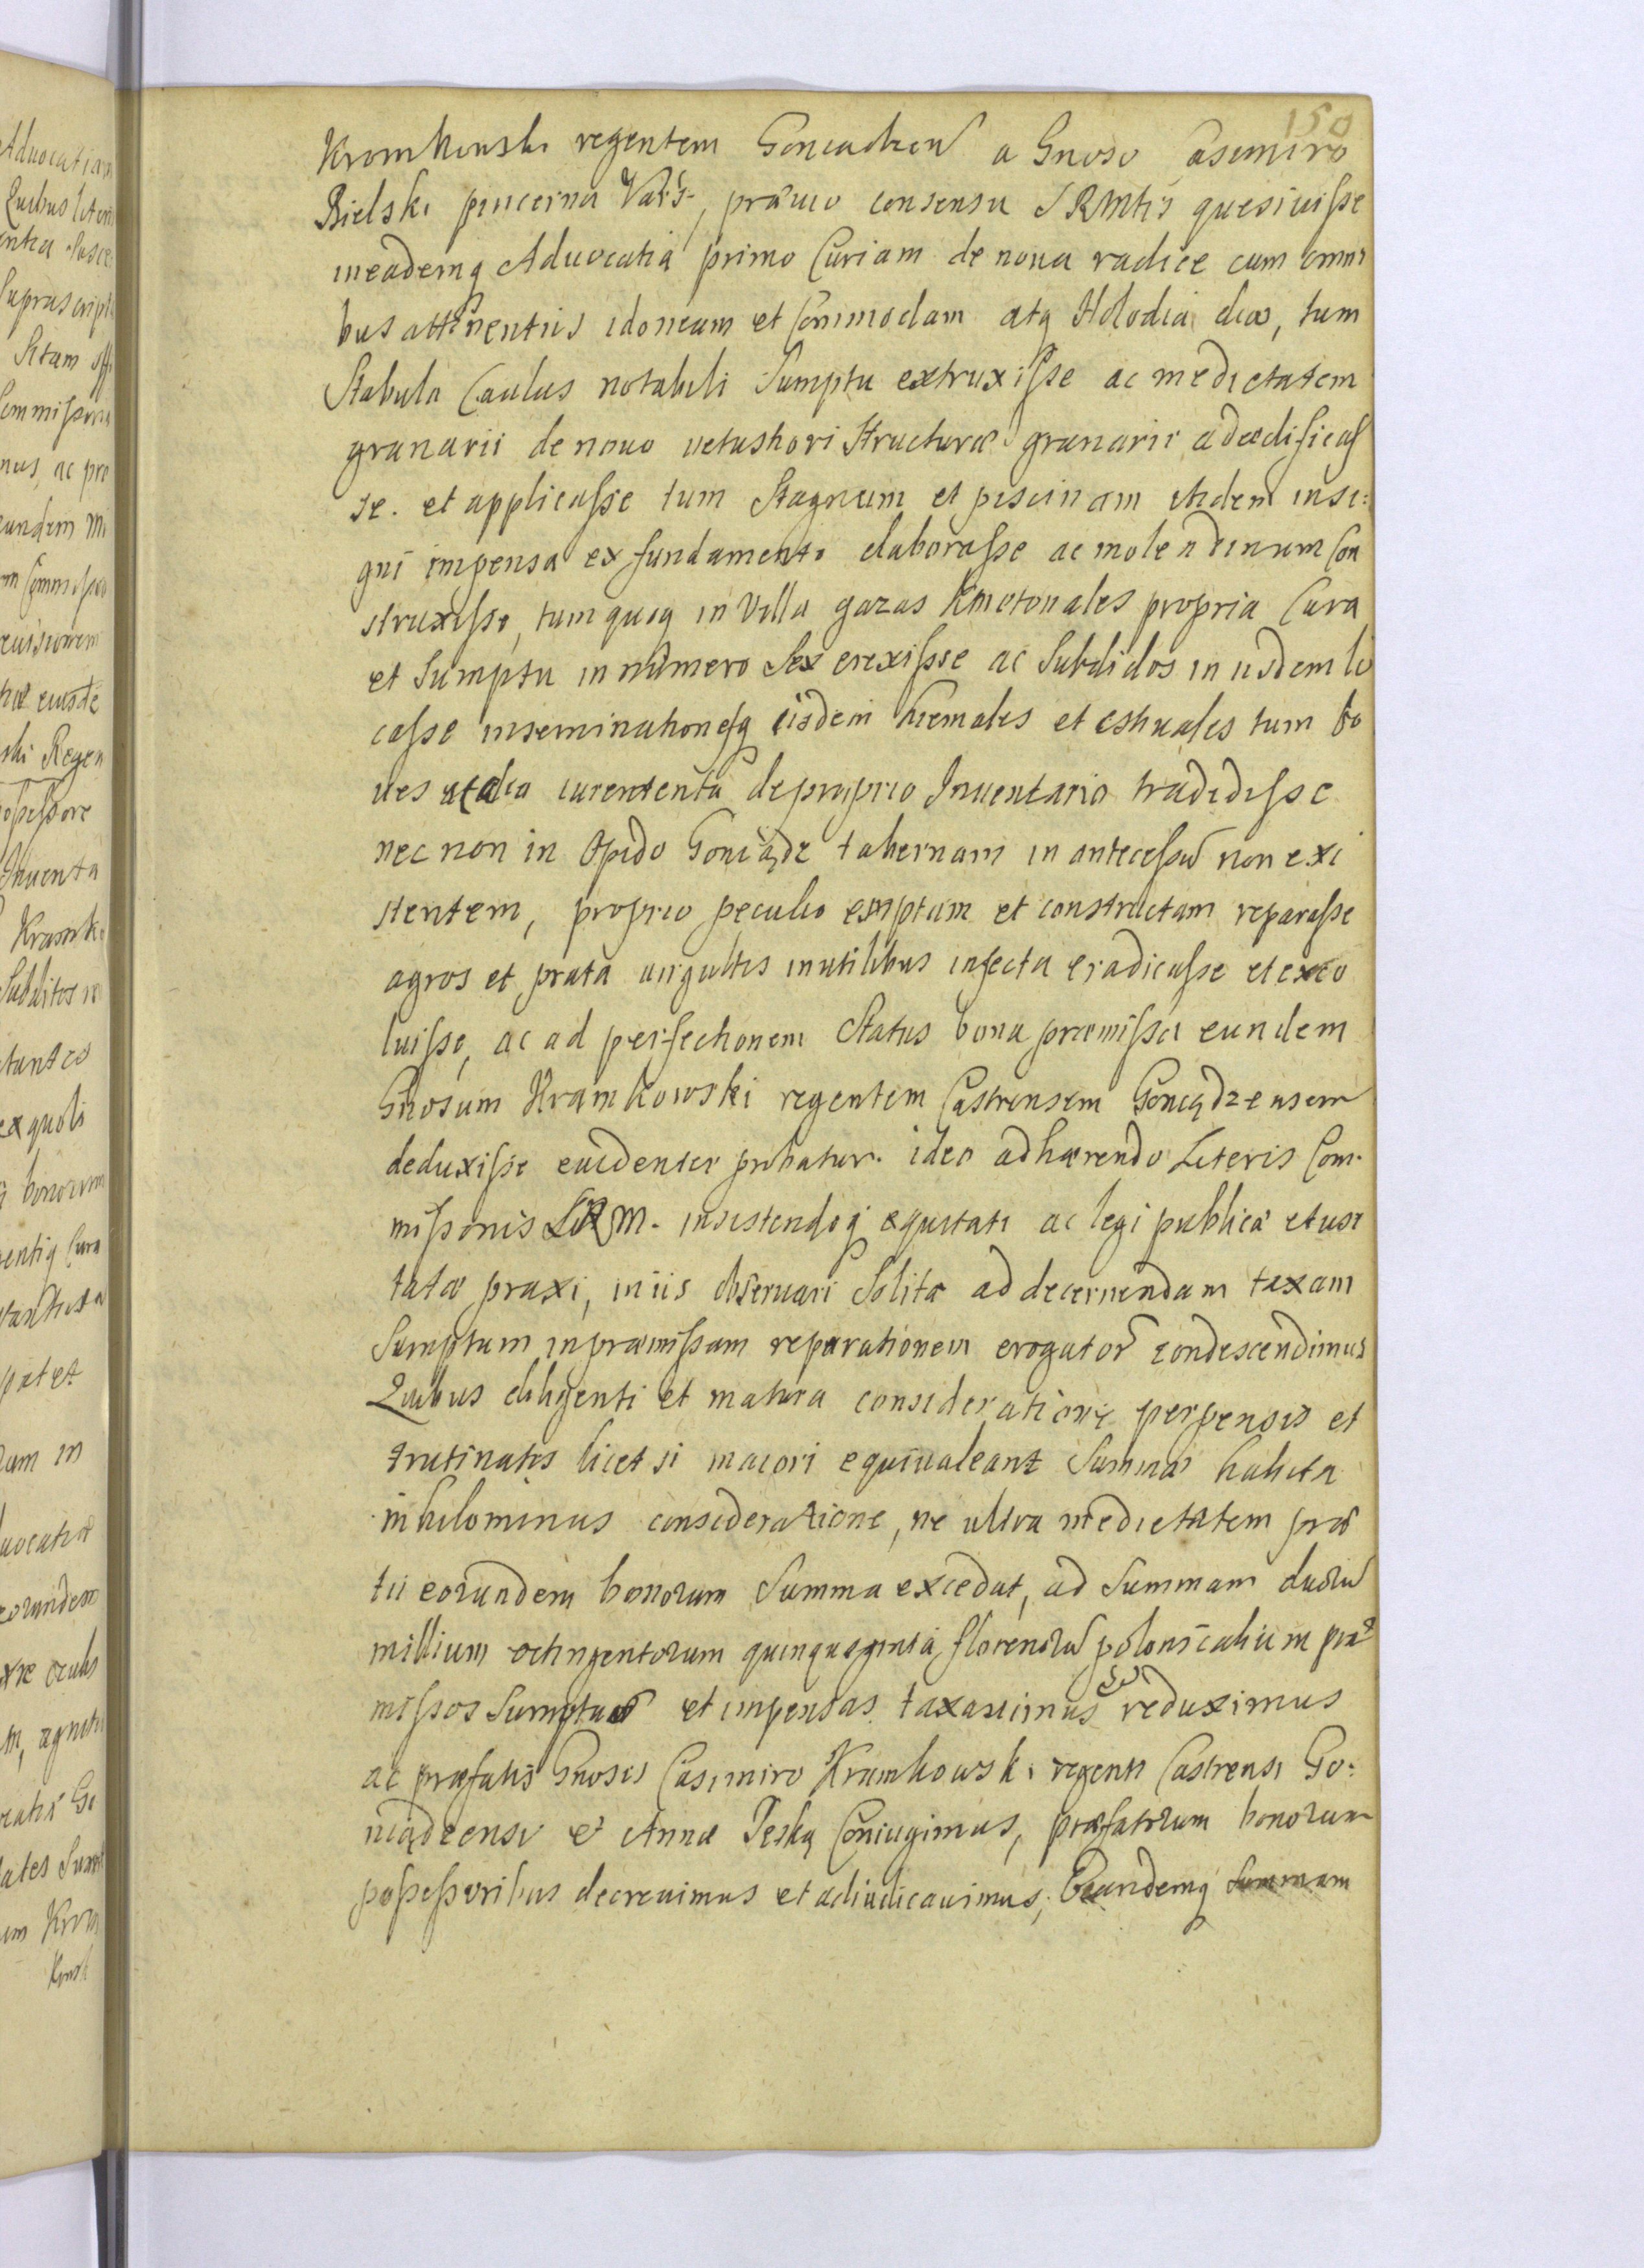 150
Kromkowski regentem Goniadzen a Gnoso Casimiro
Bielski pincerna Vars, præuio consensu S R Mtis quesiuisse
ineademq Aduocatia primo Curiam de noua radice cum omni
bus attinentiis idoneam et Commodam atq Holodia dua, tum
Stabula Caulas notabili Sumptu extruxisse ac medietatem
granarii de nouo uetustiori Structuræ granarii adædificas
se. et applicasse tum Stagnum et piscinam itidem insi:
gni impensa ex fundamento elaborasse ac molendinum Con
struxisse, tum quoq in Villa gazas Kmetonales propria Cura
et Sumptu in numero Sex erexisse ac Subditos in iisdem lo
casse inseminationesq iisdem hiemales et estiuales tum bo
ues de proprio Inuentario tradidisse
nec non in Opido Goniądz tabernam in antecessu non exi
stentem, proprio peculio emptam et constructam reparasse
agros et prata uirgultis inutilibus infecta eradicasse et exco
luisse, ac ad perfectionem Status bona præmissa eundem
Gnosum Kramkowski regentem Castrensem Goniądzensem
deduxisse euidenter probatur. ideo adhærendo Literis Com
missionis S R M. insistendoq equitati ac legi publicæ et usi
tatæ praxi, in iis obseruari Solitæ ad decernendam taxam
Sumptum inpræmissam reparationem erogator condescendimus
Quibus diligenti et matura consideratione perpensis et
trutinatis licet si maiori equiualeant Summæ habita
nihilominus consideratione, ne ultra medietatem præ
tii eorundem bonorum Summa excedat, ad Summam duoru
millium octingentorum quinquaginta florenoru polonicalium præ
missos Sumptus et impensas taxauimus seu reduximus
ac præfatis Gnosis Casimiro Kramkowski regenti Castrensi Go:
niądzensi et Annæ Peską Coniugimus, præfatorum bonorum
possessoribus decreuimus et adiudicauimus; Eandemq Summam